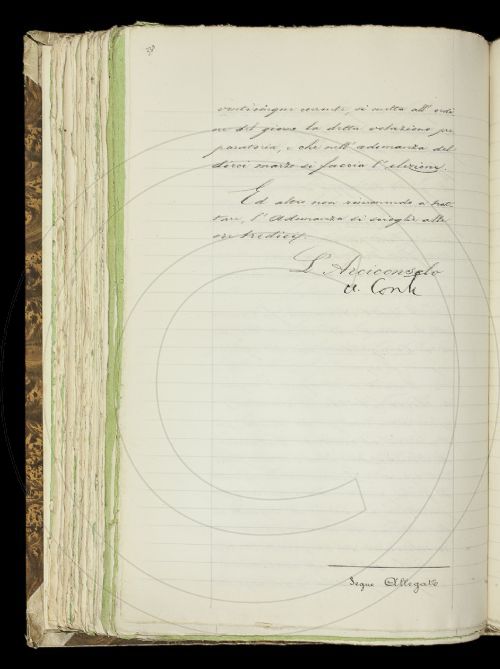 venticinque corrente, si metta all' ordi
ne del giorno la detta votazione pre
paratoria, e che nell' adunanza del
dieci marzo si faccia l' elezione.
Ed altro non rimanendo a trat-
tare, l' Adunanza si scioglie alle
ore tredici.
L' Arciconsolo
A. Conti
Segue Allegato